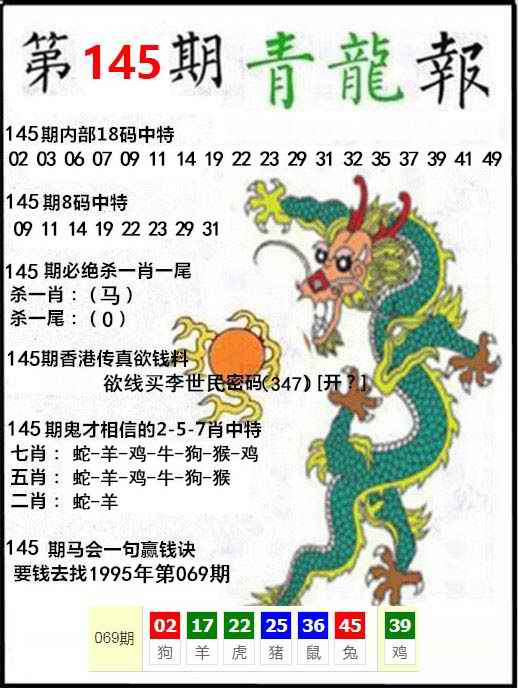 第145期青龍報
145期内部18码中特
02 03 06 07 09 11 14 19 22 23 29 31 32 35 37 39 41 49
145期8码中特
09 11 14 19 22 23 29 31
145 期必绝杀一肖一尾
杀一肖：（马）
杀一尾：（0）
145期香港传真欲钱料
欲线买李世民密码(347) [开？]
145期鬼才相信的2-5-7肖中特
七肖： 蛇-羊-鸡-牛-狗-猴-鸡
五肖： 蛇-羊-鸡-牛-狗-猴
二肖： 蛇-羊
145 期马会一句赢钱诀
要钱去找1995年第069期
069期 02 17 22 25 36 45 39
狗 羊 虎 猪 鼠 兔 鸡